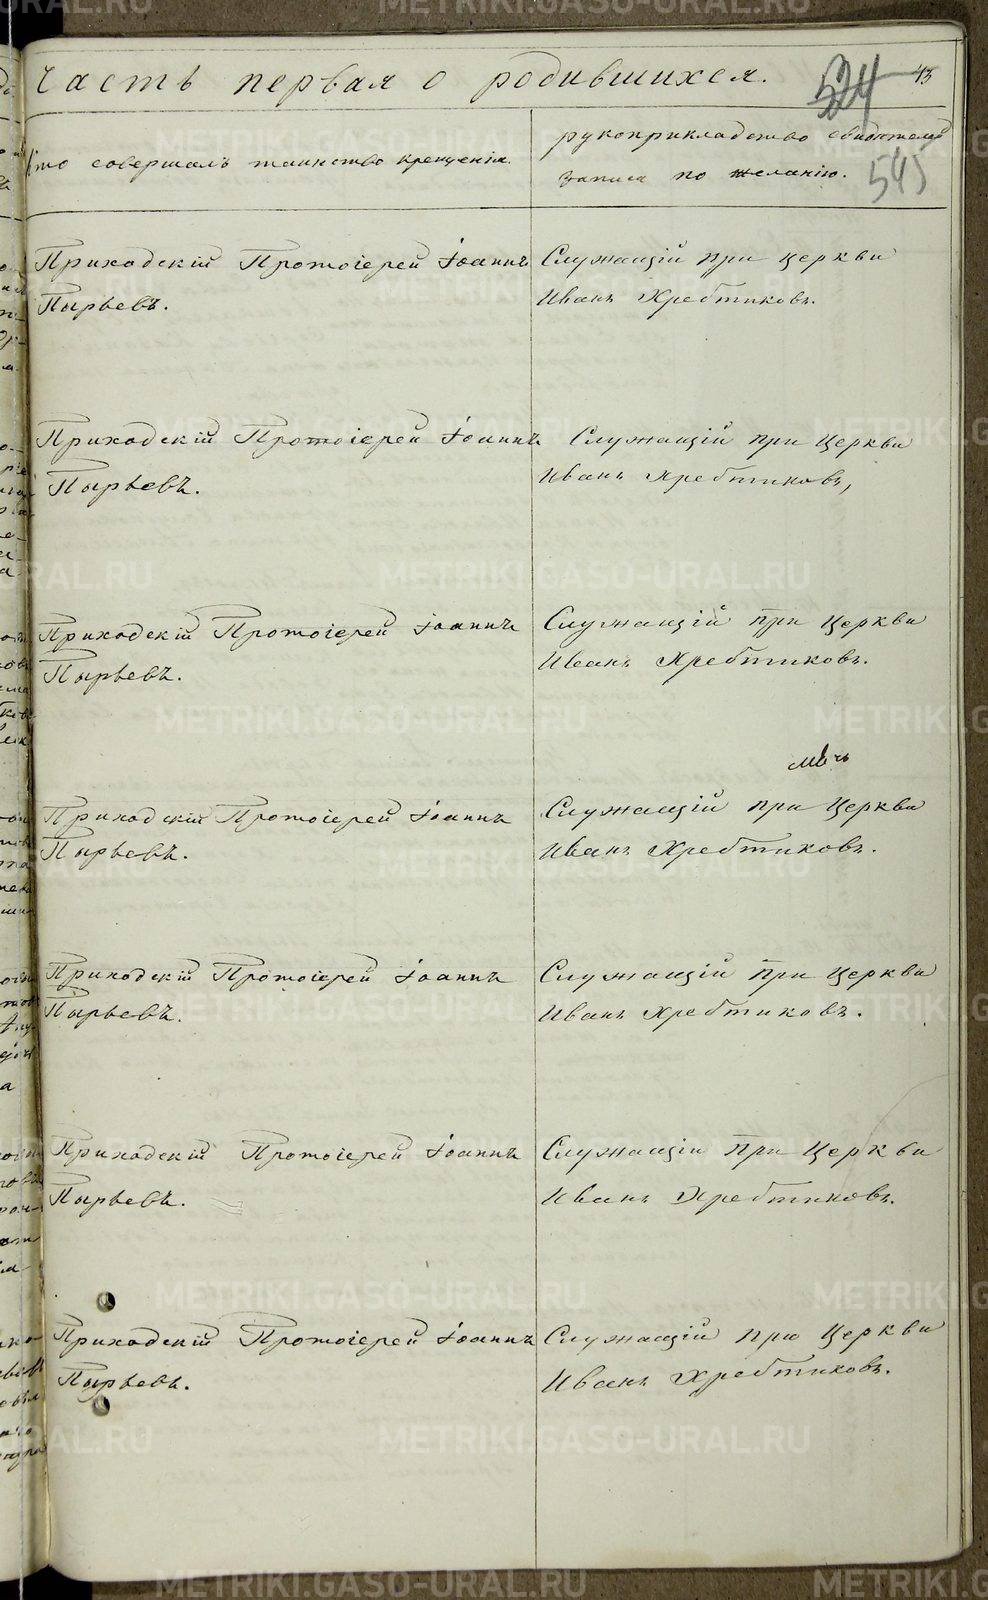 Часть первая о родившихся.
524
43
Кто совершалъ таинство крещенія.
рукоприкладство свидетелей
записи по желанію.
545
Приходскій Протоіерей Іоаннъ
Пырьевъ.
Служащій при церкви
Иванъ Хребтиковъ.
Приходскій Протоіерей Іоаннъ
Пырьевъ.
Служащій при церкви
Иванъ Хребтиковъ,
Приходскій Протоіерей Іоаннъ
Пырьевъ.
Служащій при церкви
Иванъ Хребтиковъ.
Приходскій Протоіерей Іоаннъ
Пырьевъ.
Служащій при церкви
Иванъ Хребтиковъ.
Приходскій Протоіерей Іоаннъ
Пырьевъ.
Служащій при церкви
Иванъ Хребтиковъ.
Приходскій Протоіерей Іоаннъ
Пырьевъ.
Служащіи при церкви
Иванъ Хребтиковъ.
Приходскій Протоіерей Іоаннъ
Пырьевъ.
Служащій при церкви
Иванъ Хребтиковъ.
METRIKI.GASO-URAL.RU